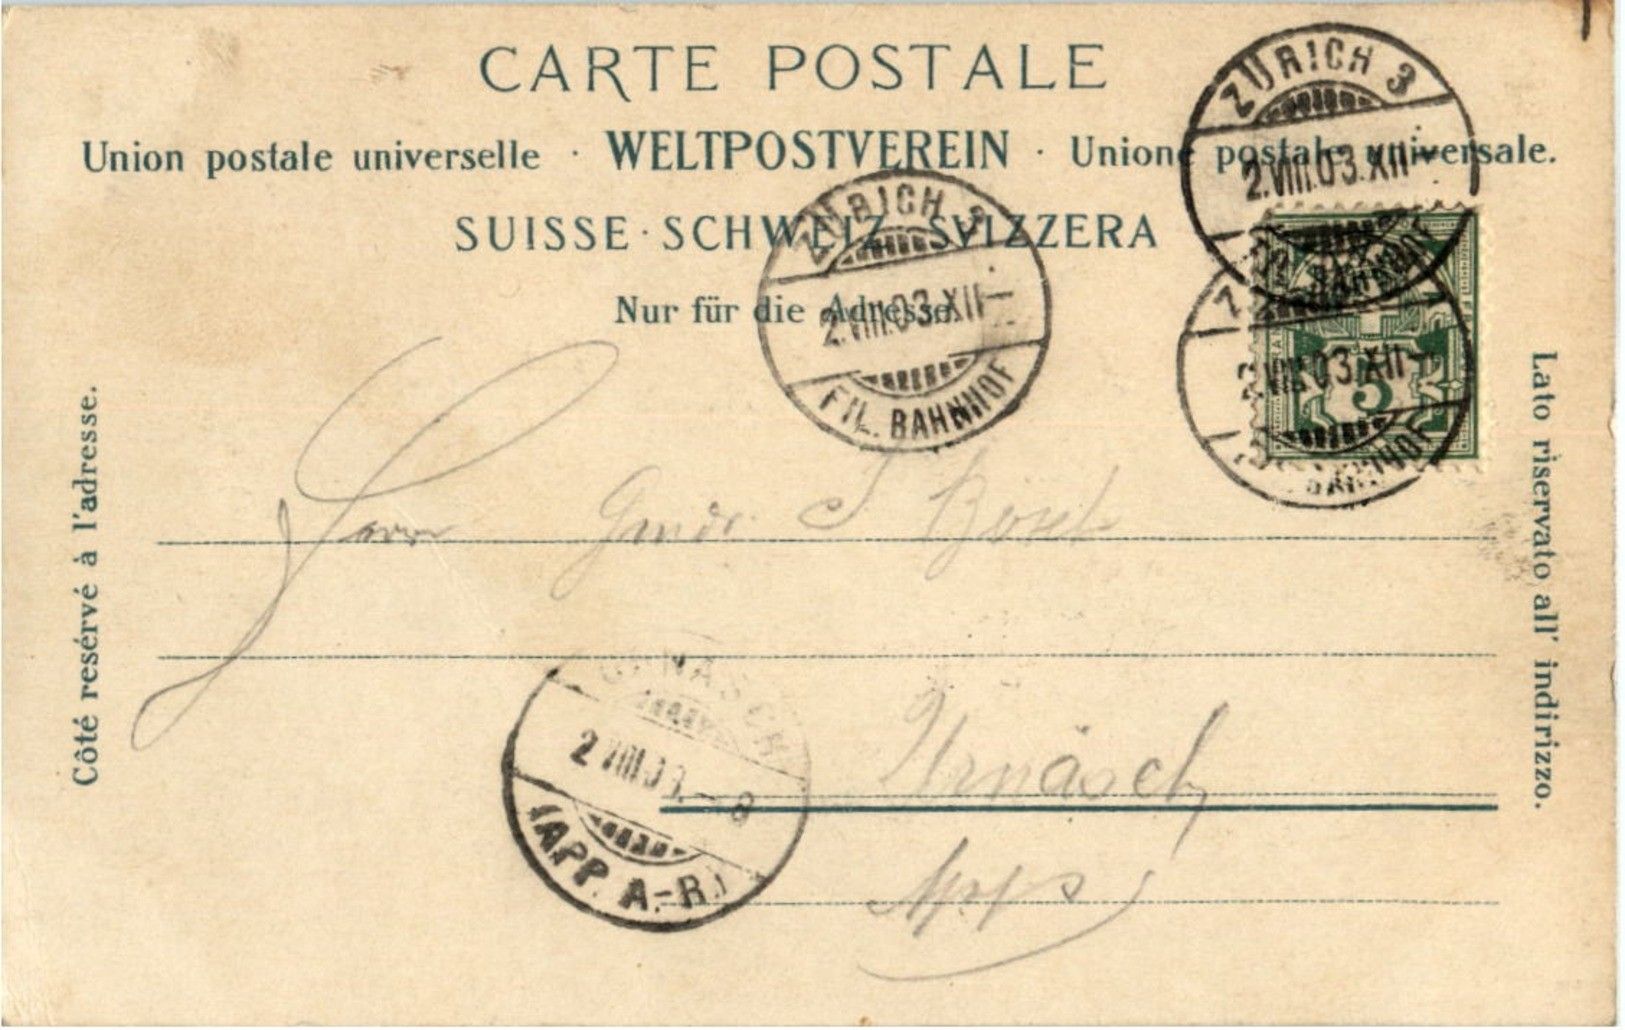 CARTE POSTALE
Union postale universelle · WELTPOSTVEREIN · Unione postale universale.
SUISSE · SCHWEIZ · SVIZZERA
Nur für die Adresse.
Côté resérvé à l'adresse.
Lato riservato all' indirizzo.
ZÜRICH 3
2.VIII.03.XII–
FIL. BAHNHOF
ZÜRICH 3
2.VIII.03.XII–
FIL. BAHNHOF
2.VIII.03.XII–
BAHNHOF
5
Herrn J
Urnäsch
URNÄSCH
2 VIII.03.–8
(APP. A.-R.)